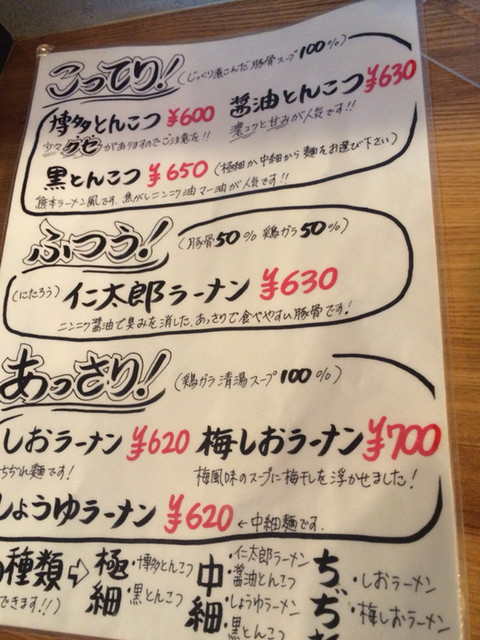 こってり! (じっくり煮こんだ豚骨スープ100%)
博多とんこつ ¥600 醤油とんこつ ¥630
少々クセがありますのでご注意を!! 濃コクと甘みが人気です!!
黒とんこつ ¥650 (極細か中細から麺をお選び下さい)
熊本ラーメン風です。焦がしニンニク油マー油が人気です!!
ふつう! (豚骨50% 鶏ガラ50%)
(にたろう) 仁太郎ラーメン ¥630
ニンニク醤油で臭みを消した、あっさりで食べやすい豚骨です!
あっさり! (鶏ガラ清湯スープ100%)
しおラーメン ¥620 梅しおラーメン ¥700
ちぢれ麺です! 梅風味のスープに梅干しを浮かせました!
しょうゆラーメン ¥620 ←中細麺です。
種類⇨
できます!!)
極細
・博多とんこつ
・黒とんこつ
中細
・仁太郎ラーメン
・醤油とんこつ
・しょうゆラーメン
・黒とんこつ
ちぢれ
・しおラーメン
・梅しおラーメン